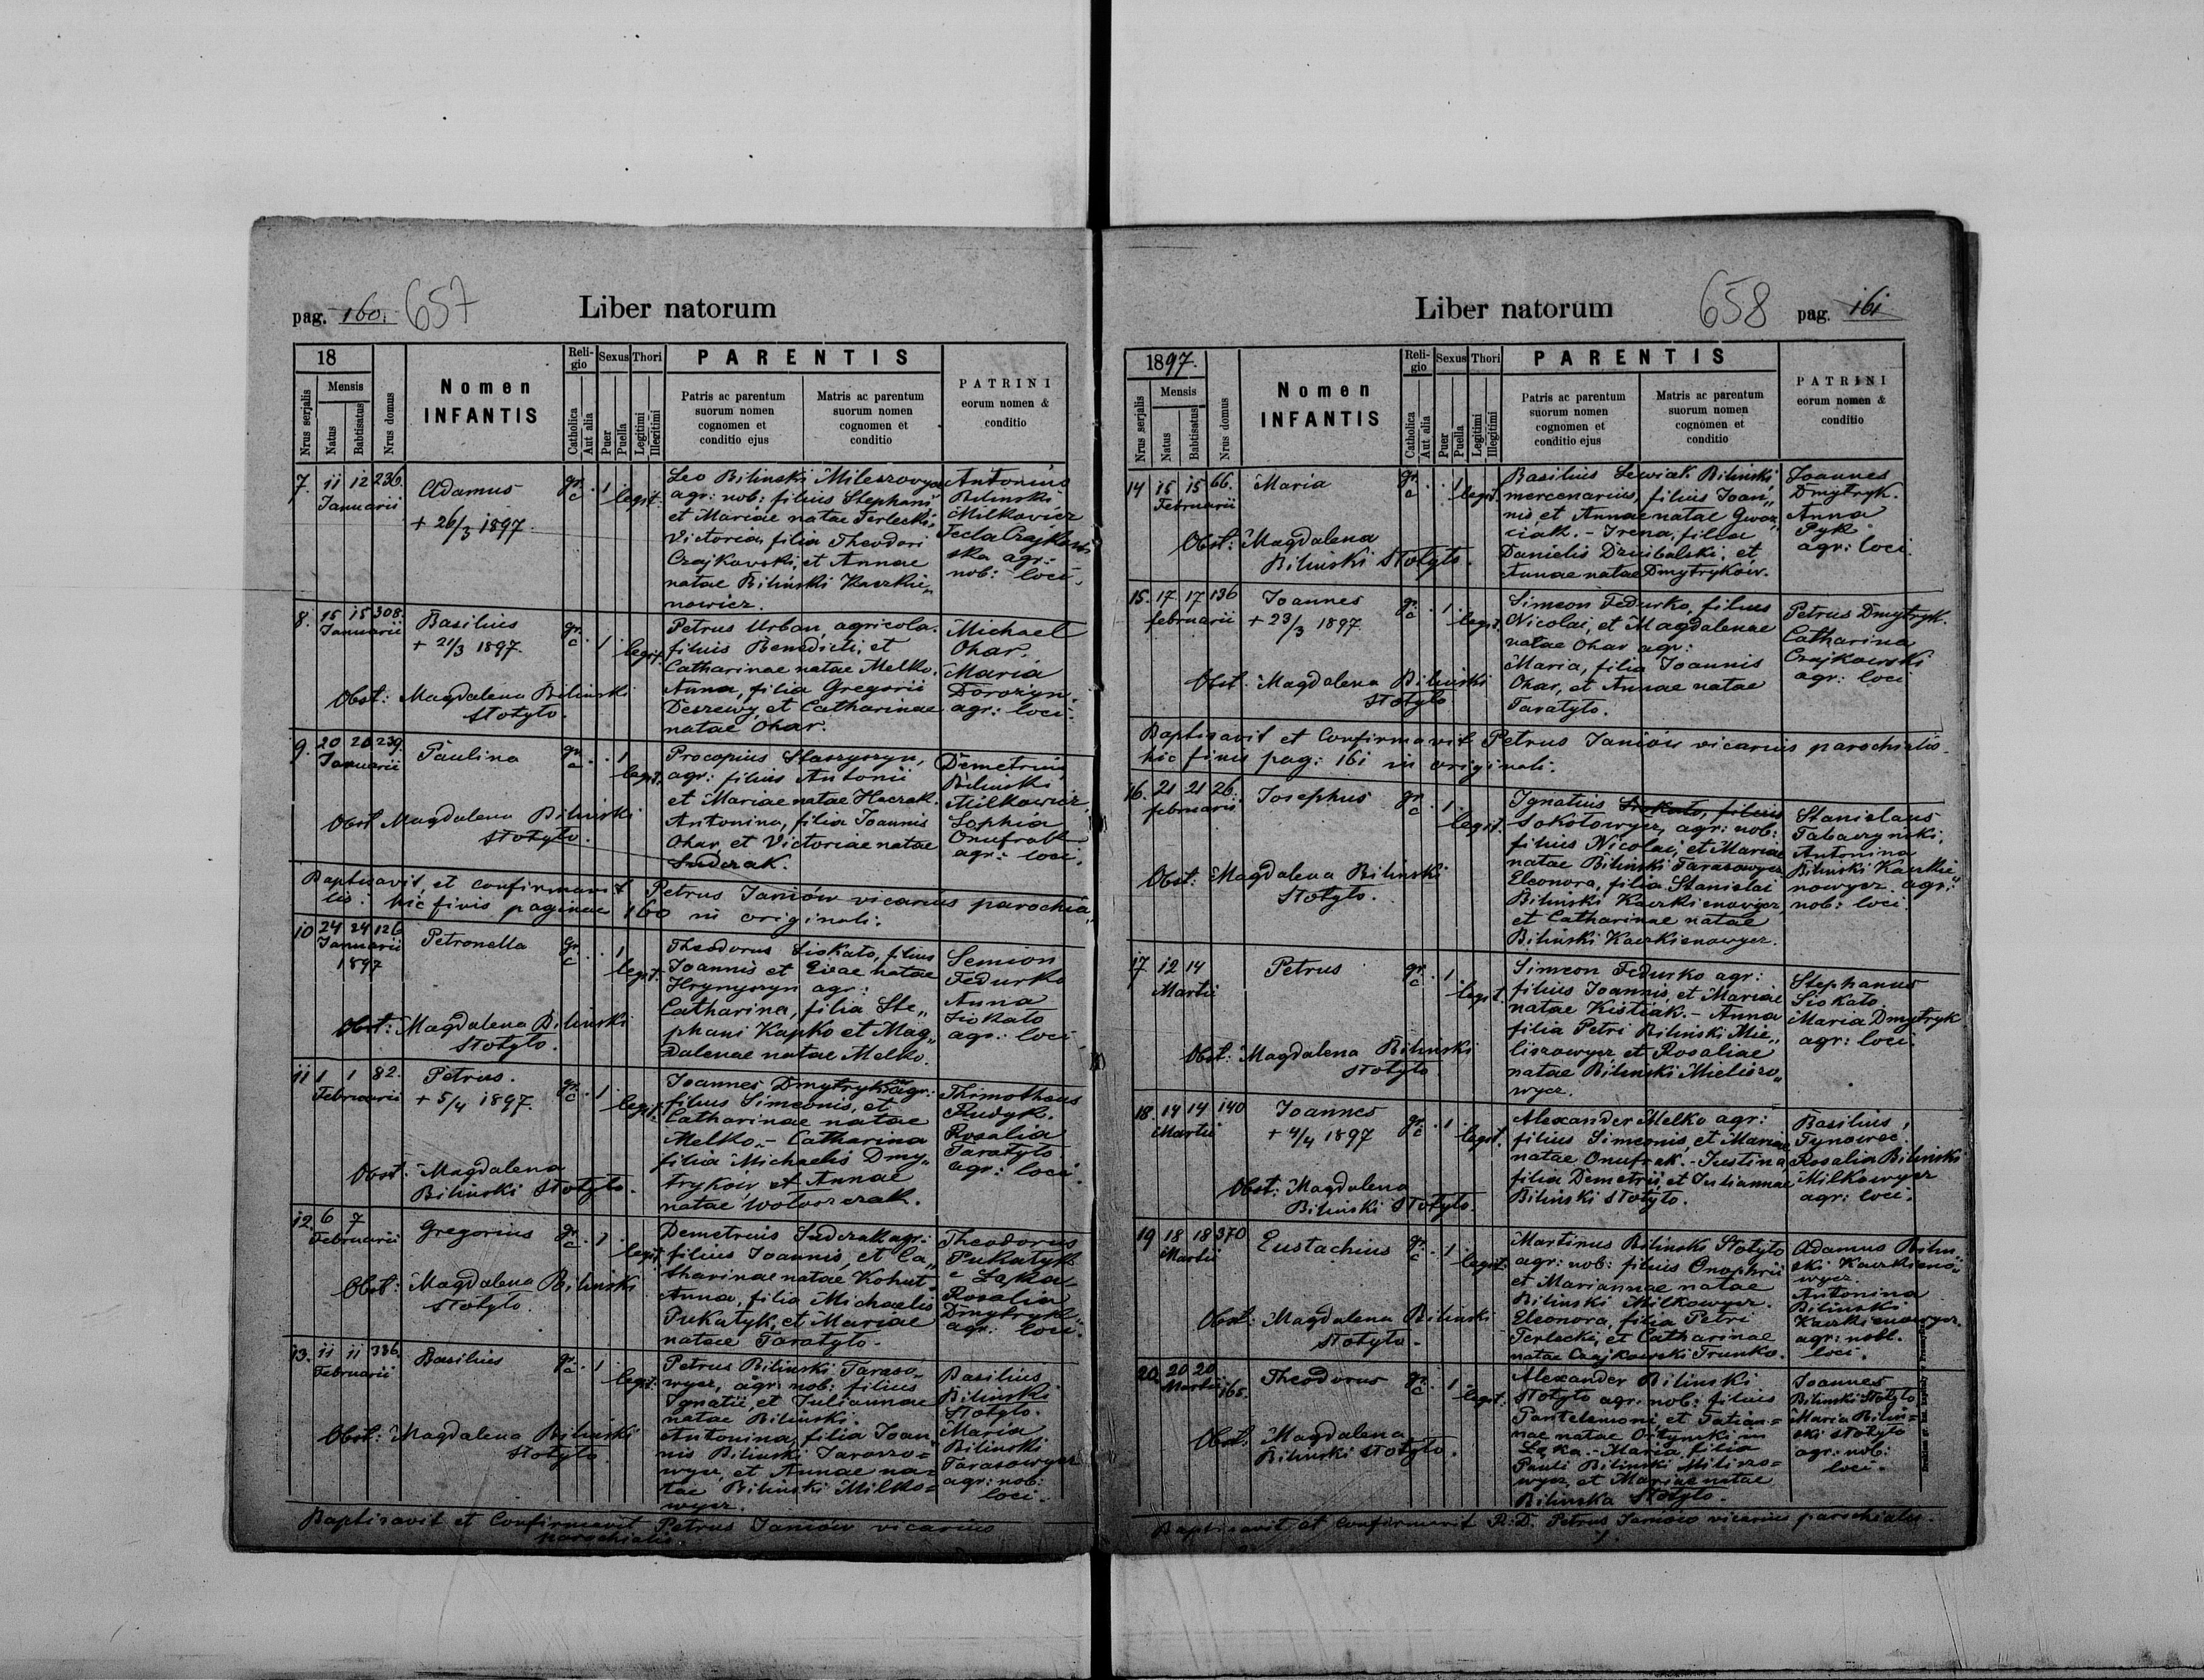 pag. 160. 657 Liber natorum
18
Nrus serjalis
Mensis
Natus
Babtisatus
Nrus domus
Nomen
INFANTIS
Reli-
gio
Catholica
Aut alia
Sexus
Puer
Puella
Thori
Legitimi
Illegitimi
PARENTIS
Patris ac parentum
suorum nomen
cognomen et
conditio ejus
Matris ac parentum
suorum nomen
cognomen et
conditio
PATRINI
eorum nomen &
conditio
7. 11 12 236.
Januarii
Adamus
+ 26/3 1897.
gr.
c
. 1
legit.
Leo Bilinski Mileszowycz
agr: nob: filius Stephani
et Mariae natae Terlecki,
Victoria, filia Theodori
Czajkowski, et Annae
natae Bilinski Kaczkie„
nowicz.
Antonius
Bilinski
Milkowicz
Tecla Czajkow
ska agr:
nob: loci.
8. 15 15 308.
Januarii
Basilius
+ 21/3 1897.
gr.
c
. 1
legit.
Obst: Magdalena Bilinski
Stotyto.
Petrus Urban, agricola.
filius Benedicti, et
Catharinae natae Melko.
Anna, filia Gregorii
Deszewy, et Catharinae
natae Ohar.
Michael
Ohar.
Maria
Dorozyn.
agr: loci.
9. 20 20 239.
Januarii
Paulina
gr.
c
. . 1
legit.
Obst Magdalena Bilinski
Stotyto.
Procopius Staszyszyn,
agr: filius Antonii
et Mariae natae Haczak.
Antonina, filia Joannis
Ohar, et Victoriae natae
Suderak.
Demetrius
Bilinski
Milkowicz
Sophia
Onufrak
agr: loci.
Baptisavit, et confirmavit Petrus Janiów vicarius parochia„
lis. hic finis paginae 160 in originali.
10 24 24 126
Januarii
1897
Petronella
gr.
c
. . 1
legit.
Obst: Magdalena Bilinski
Stotyto.
Theodorus Siokato, filius
Joannis et Evae natae
Hrynyszyn agr:
Catharina, filia Ste„
phani Kapko et Mag„
dalenae natae Melko.
Semion
Fedurko
Anna
Siokato
agr: loci.
11 1 1 82.
Februarii
Petrus.
+ 5/4 1897.
gr.
c
. 1.
legit.
Obst: Magdalena
Bilinski Stotyto.
Joannes Dmytryków agr:
filius Simeonis, et
Catharinae natae
Melko. - Catharina
filia Michaelis Dmy„
tryków et Annae
natae Wotoszczak.
Thimotheus
Rudyk.
Rosalia
Taratyto
agr: loci.
12. 6 7
Februarii
Gregorius
gr.
c
. 1
legit.
Obst: Magdalena Bilinski
Stotyto.
Demetrius Suderak agr:
filius Joannis, et Ca„
tharinae natae Kohut
Anna, filia Michaelis
Pukatyk, et Mariae
natae Taratyto.
Theodorus
Pukatyk
e Łąka
Rosalia
Dmytryk
agr: loci.
13. 11 11 386.
Februarii
Basilius
gr.
c
. 1.
legit.
Obst: Magdalena Bilinski
Stotyto.
Petrus Bilinski Taraso„
wycz, agr: nob: filius
Ignatii, et Juliannae
natae Bilinski.
Antonina, filia Joan„
nis Bilinski Taraso=
wycz, et Annae na=
tae Bilinski Milko=
wycz.
Basilius
Bilinski
Stotyto.
Maria
Bilinski
Tarasowycz
agr: nob:
loci.
Baptisavit et Confirmavit Petrus Janiów vicarius
parochialis.
Liber natorum 658 pag. 161
1897.
Nrus serjalis
Mensis
Natus
Babtisatus
Nrus domus
Nomen
INFANTIS
Reli-
gio
Catholica
Aut alia
Sexus
Puer
Puella
Thori
Legitimi
Illegitimi
PARENTIS
Patris ac parentum
suorum nomen
cognomen et
conditio ejus
Matris ac parentum
suorum nomen
cognomen et
conditio
PATRINI
eorum nomen &
conditio
14 15 15 66.
Februarii
Maria
gr.
c
. . 1
legit.
Obst: Magdalena
Bilinski Stotyto.
Basilius Lewiak Bilinski
mercenarius, filius Joan„
nis, et Annae natae Gwoz„
ciak. - Irena, filia
Danielis Dzubalski, et
Annae natae Dmytryków.
Joannes
Dmytryk.
Anna
Pyk
agr: loci.
15. 17 17 136
februarii
Joannes
+ 23/3 1897.
gr.
c
. 1.
legit.
Obst: Magdalena Bilinski
Stotyto
Simeon Fedurko, filius
Nicolai, et Magdalenae
natae Ohar agr:
Maria, filia Joannis
Ohar, et Annae natae
Taratyto.
Petrus Dmytryk.
Catharina
Czajkowski
agr: loci
Baptisavit et Confirmavit Petrus Janiów vicarius parochialis.
hic finis pag: 161 in originali.
16. 21 21 26.
februarii
Josephus
gr.
c
. 1.
legit.
Obst: Magdalena Bilinski
Stotyto.
Ignatius Siokato, filius
Sokotowycz, agr: nob:
filius Nicolai, et Mariae
natae Bilinski Tarasowycz
Eleonora, filia Stanislai
Bilinski Kaczkienowycz,
et Catharinae natae
Bilinski Kaczkienowycz.
Stanislaus
Tabaczynski,
Antonina
Bilinski Kaczkie„
nowycz. agr:
nob: loci.
17 12 14
Martii
Petrus
gr.
c
. 1
legit.
Obst: Magdalena Bilinski
Stotyto.
Simeon Fedurko agr:
filius Joannis, et Mariae
natae Kistiak. - Anna
filia Petri Bilinski Mie„
liszowycz, et Rosaliae
natae Bilinski Mieliszo„
wycz.
Stephanus
Siokato
Maria Dmytryk
agr: loci.
18. 14 14 140
Martii
Joannes
+ 4/4 1897
gr.
c
. 1.
legit.
Obst: Magdalena
Bilinski Stotyto.
Alexander Melko agr:
filius Simeonis, et Mariae
natae Onufrak. - Justina,
filia Demetrii, et Juliannae
Bilinski Stotyto.
Basilius
Tynowec.
Rosalia Bilinski
Milkowycz
agr: loci.
19 18 18 370
Martii
Eustachius
gr.
c
. 1.
legit.
Obst: Magdalena Bilinski
Stotyto.
Martinus Bilinski Stotyto
agr: nob: filius Onophrii
et Mariannae natae
Bilinski Milkowycz.
Eleonora, filia Petri
Terlecki, et Catharinae
natae Czajkowski Trunko.
Adamus Bilin„
ski Kaczkieno„
wycz.
Antonina
Bilinski
Kaczkienowycz.
agr: nobl.
loci.
20. 20 20
Martii 165.
Theodorus
gr.
c
. 1
legit.
Obst. Magdalena
Bilinski Stotyto.
Alexander Bilinski
Stotyto agr: nob: filius
Pantelemoni, et Tatian=
nae natae Ortynski in
Łąka. - Maria, filia
Pauli Bilinski Miliszo=
wycz, et Mariae natae
Bilinska Stotyto.
Joannes
Bilinski Stotyto
Maria Bilin=
ski Stotyto
agr: nob:
loci.
Baptisavit et Confirmavit R. D. Petrus Janiów vicarius parochialis.